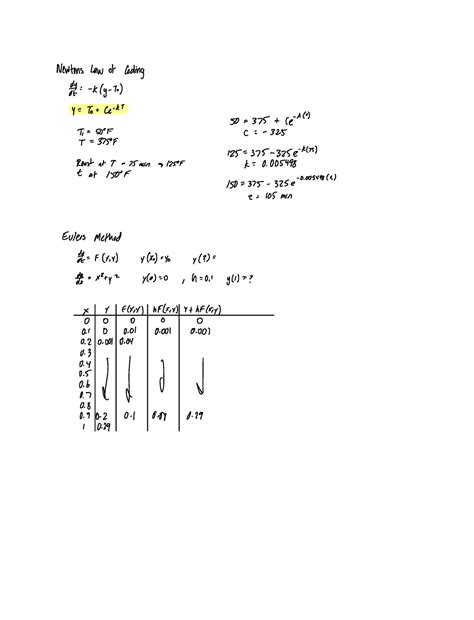 Newtons Law of Cooling
dy/dt = -k(y-T₀)
y = T₀ + Ce^-kT
T₁ = 50°F
T = 375°F
Roast at T = 75 min → 125°F
t at 150°F
50 = 375 + Ce^-k(0)
C = -325
125 = 375 - 325e^-k(75)
k = 0.005498
150 = 375 - 325e^-0.005498(t)
t = 105 min
Eulers Method
dy/dt = F(x,y) y(x₀) = y₀ y(?) =
dy/dx = x²+y² y(0) = 0 , h = 0.1 y(1) = ?
x y F(x,y) hF(x,y) y + hF(x,y)
0 0 0 0 0
0.1 0 0.01 0.001 0.001
0.2 0.001 0.04
0.3
0.4
0.5
0.6
0.7
0.8
0.9 0.2 0.1 0.29
1 0.29